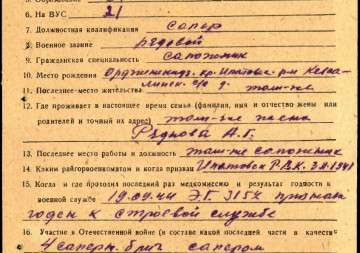 6. На ВУС 21
7. Должностная квалификация сапер
8. Военное звание рядовой
9. Гражданская специальность сапожник
10. Место рождения Орджоникидз. кр. Ипатовс. р-н
11. Последнее место жительства там-же
12. Где проживает в настоящее время семья (фамилия, имя и отчество жены или
родителей и точный их адрес) там-же жена
Руднова А. Г.
13. Последнее место работы и должность там-же сапожник
14. Каким райгорвоенкоматом и когда призван Ипатовск РВК 1941
15. Когда и где проходил последний раз медкомиссию и результат годности к
военной службе 19.09.44 Э.Г. 3157 признан
годен к строевой службе
16. Участие в Отечественной войне (в составе какой последней части и в качестве
4 саперн. бриг сапером